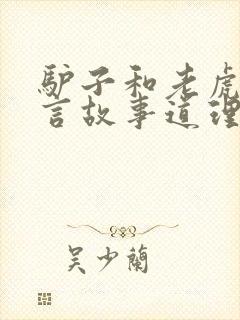 驴子和老虎
言故事道理
吴少蘭